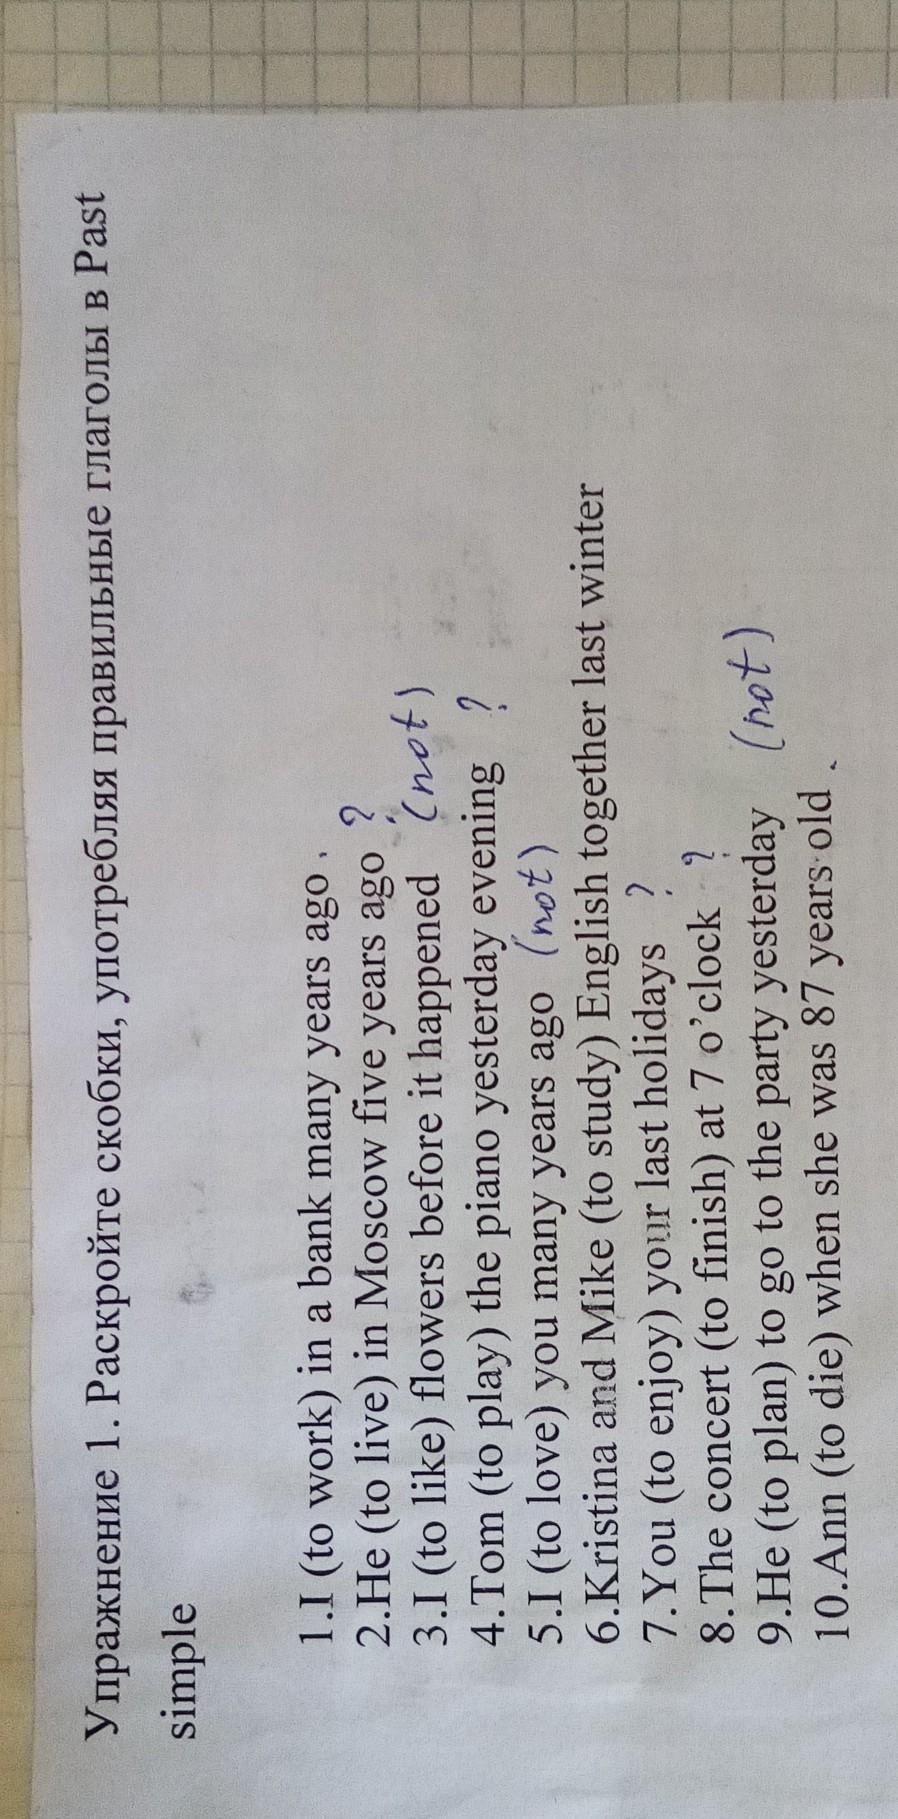 Упражнение 1. Раскройте скобки, употребляя правильные глаголы в Past
simple
1.I (to work) in a bank many years ago.
2.He (to live) in Moscow five years ago ?
3.I (to like) flowers before it happened (not)
4.Tom (to play) the piano yesterday evening ?
5.I (to love) you many years ago (not)
6.Kristina and Mike (to study) English together last winter
7.You (to enjoy) your last holidays ?
8.The concert (to finish) at 7 o'clock ?
9.He (to plan) to go to the party yesterday (not)
10.Ann (to die) when she was 87 years old.